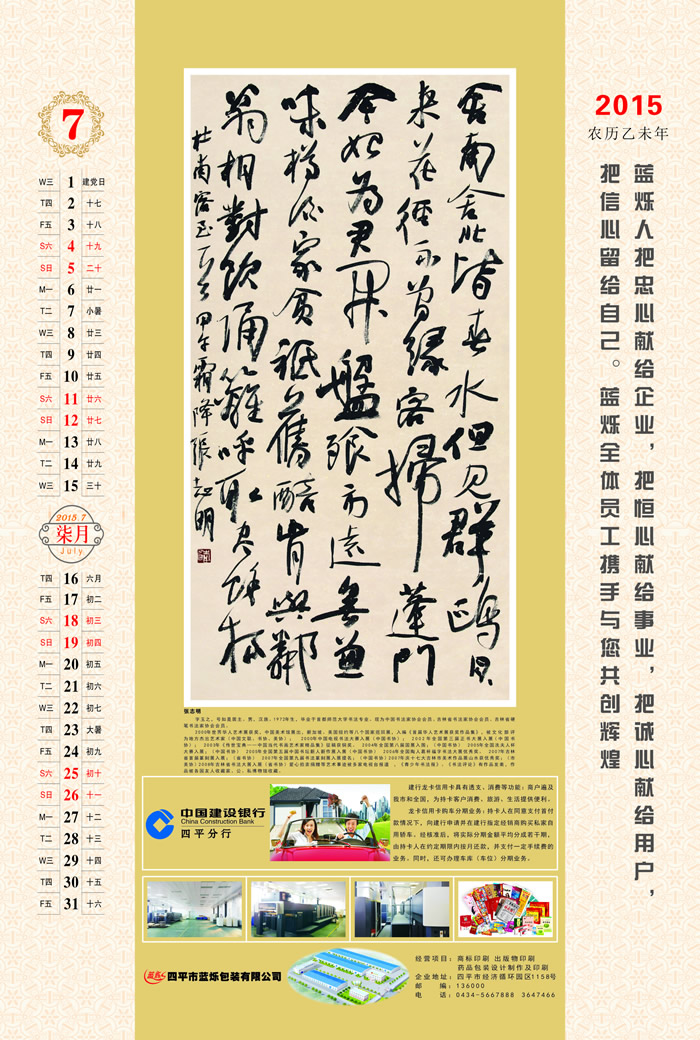 7
W三 1 建党日
T四 2 十七
F五 3 十八
S六 4 十九
S日 5 二十
M一 6 廿一
T二 7 小暑
W三 8 廿三
T四 9 廿四
F五 10 廿五
S六 11 廿六
S日 12 廿七
M一 13 廿八
T二 14 廿九
W三 15 三十
2015.7
柒月
July
T四 16 六月
F五 17 初二
S六 18 初三
S日 19 初四
M一 20 初五
T二 21 初六
W三 22 初七
T四 23 大暑
F五 24 初九
S六 25 初十
S日 26 十一
M一 27 十二
T二 28 十三
W三 29 十四
T四 30 十五
F五 31 十六
舍南舍北皆春水但见群鸥日
来花径不曾缘客扫蓬门
今始为君开盘飧市远无兼
味樽酒家贫祗旧醅肯与邻
翁相对饮隔篱呼取尽馀杯
杜甫客至一首 甲午霜降 张志明
2015
农历乙未年
蓝烁人把忠心献给企业，把恒心献给事业，把诚心献给用户，
把信心留给自己。蓝烁全体员工携手与您共创辉煌
张志明
中国建设银行
China Construction Bank
四平分行
建行龙卡信用卡具有透支、消费等功能；商户遍及
我市和全国，为持卡客户消费、旅游、生活提供便利。
龙卡信用卡购车分期业务：持卡人在同意支付首付
款情况下，向建行申请并在建行指定经销商购买私家自
用轿车。经核准后，将实际分期金额平均分成若干期，
由持卡人在约定期限内按月还款，并支付一定手续费的
业务。同时，还可办理车库（车位）分期业务。
蓝烁
四平市蓝烁包装有限公司
经营项目：商标印刷 出版物印刷
药品包装设计制作及印刷
企业地址：四平市经济循环园区1158号
邮 编：136000
电 话：0434-5667888 3647466